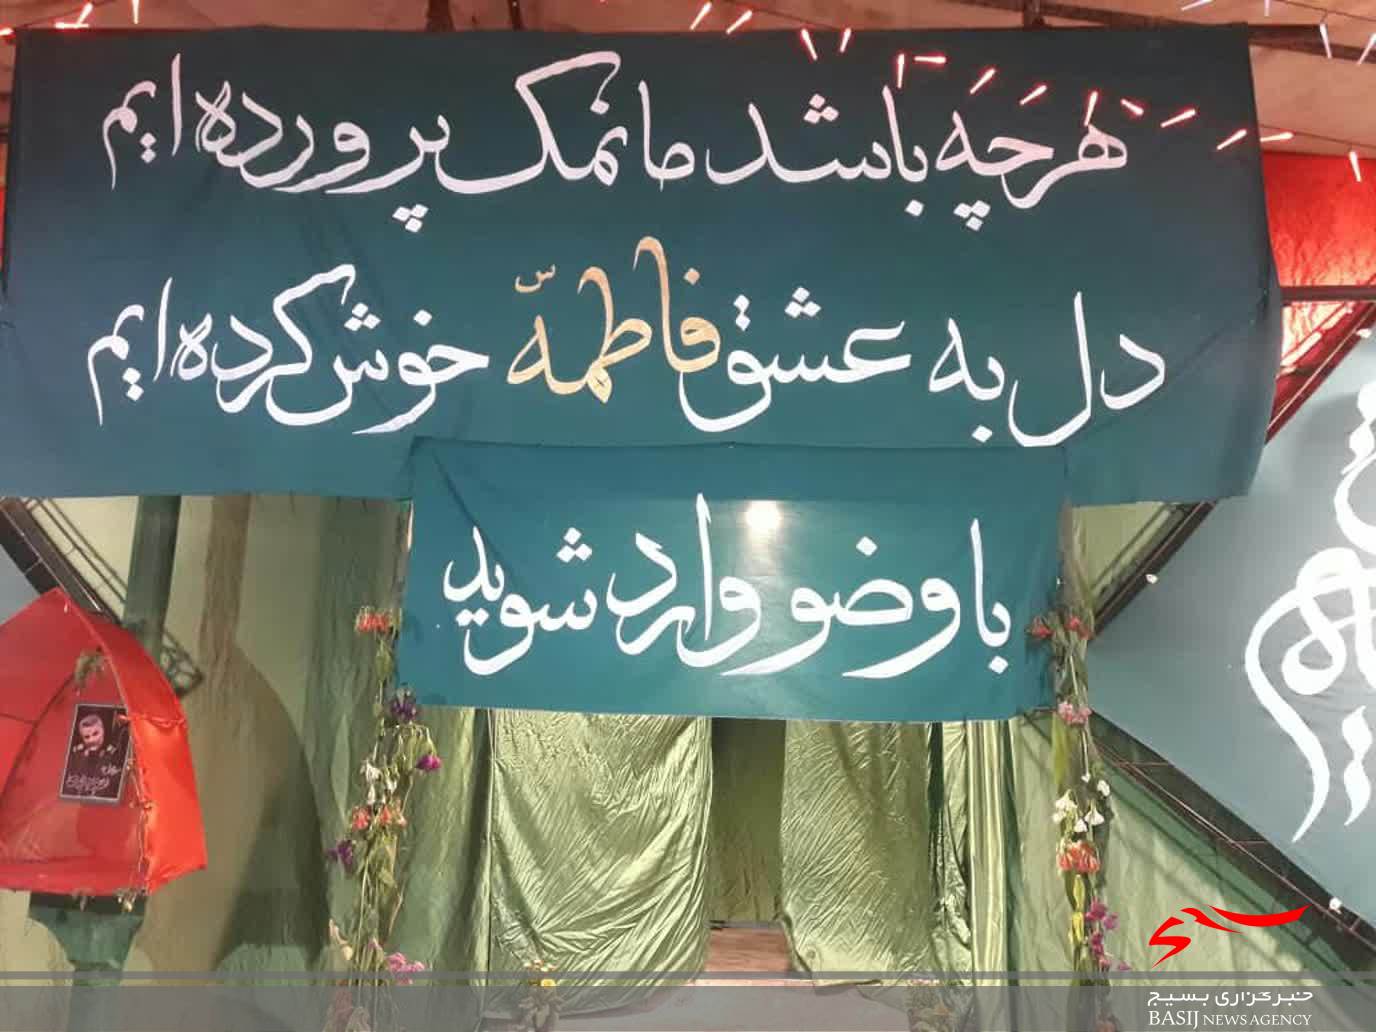 هر چه باشد ما نمک پرورده ایم
دل به عشق فاطمهّ س خوش کرده ایم
با وضو وارد شوید
بسیج
خبرگزاری بسیج
BASIJ NEWS AGENCY